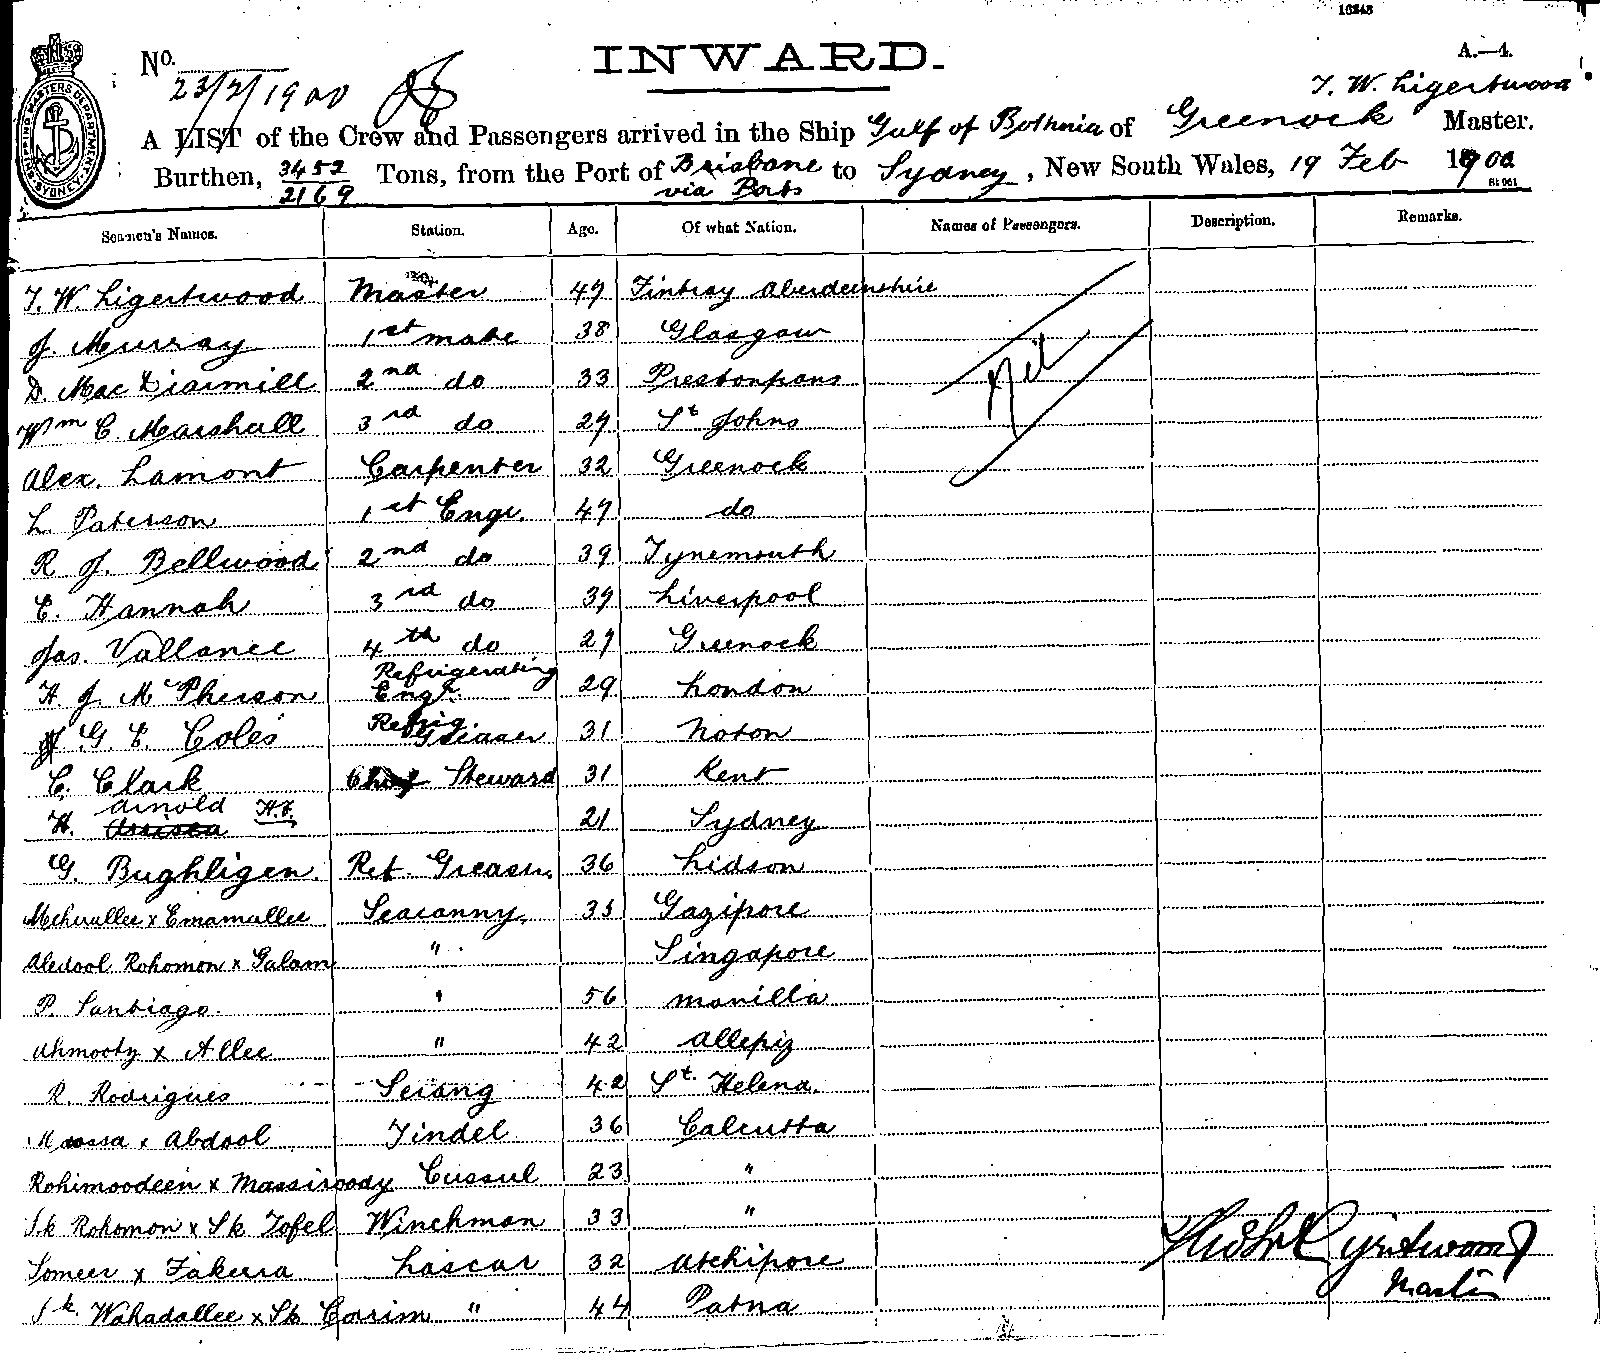 16243
INWARD.
A.—4.
No.
23/2/1900
T. W. Ligertwood
A LIST of the Crew and Passengers arrived in the Ship Gulf of Bothnia of Greenock Master.
Burthen, 3452/2169 Tons, from the Port of Brisbane via Ports to Sydney, New South Wales, 19 Feb 1900
SHIPPING MASTERS DEPARTMENT SYDNEY
Seamen's Names. Station. Age. Of what Nation. Names of Passengers. Description. Remarks.
T. W. Ligertwood Master 49 Fintray Aberdeenshire
J. Murray 1st mate 38 Glasgow
Nil
D. Mac Diarmill 2nd do 33 Prestonpans
Wm C. Marshall 3rd do 29 St Johns
Alex. Lamont Carpenter 32 Greenock
L. Paterson 1st Engr. 47 do
R J. Bellwood 2nd do 39 Tynemouth
C. Hannah 3rd do 39 Liverpool
Jas. Vallance 4th do 27 Greenock
H. J. McPherson Refrigerating Engr. 29 London
G. E. Coles Refrig. Greaser 31
C. Clark Chief Steward 31 Kent
H. Arnold 21 Sydney
G. Bughligen Ref. Greaser 36
Meherullee x Emamallee Seacunny 35 Gazipore
Abdool Rohomon x Galam " Singapore
P. Santiago " 56 Manilla
Ahmooty x Allee " 42
R. Rodrigues Serang 42 St. Helena.
Moossa x Abdool Tindel 36 Calcutta
Rohimoodeen x Massiroody Cussul 23 "
Sk Rohomon x Sk Tofel Winchman 33 "
Someer x Fakeera Lascar 32
Sk. Wahadallee x Sk Corrim " 44 Patna
Thos W Ligertwood
Master